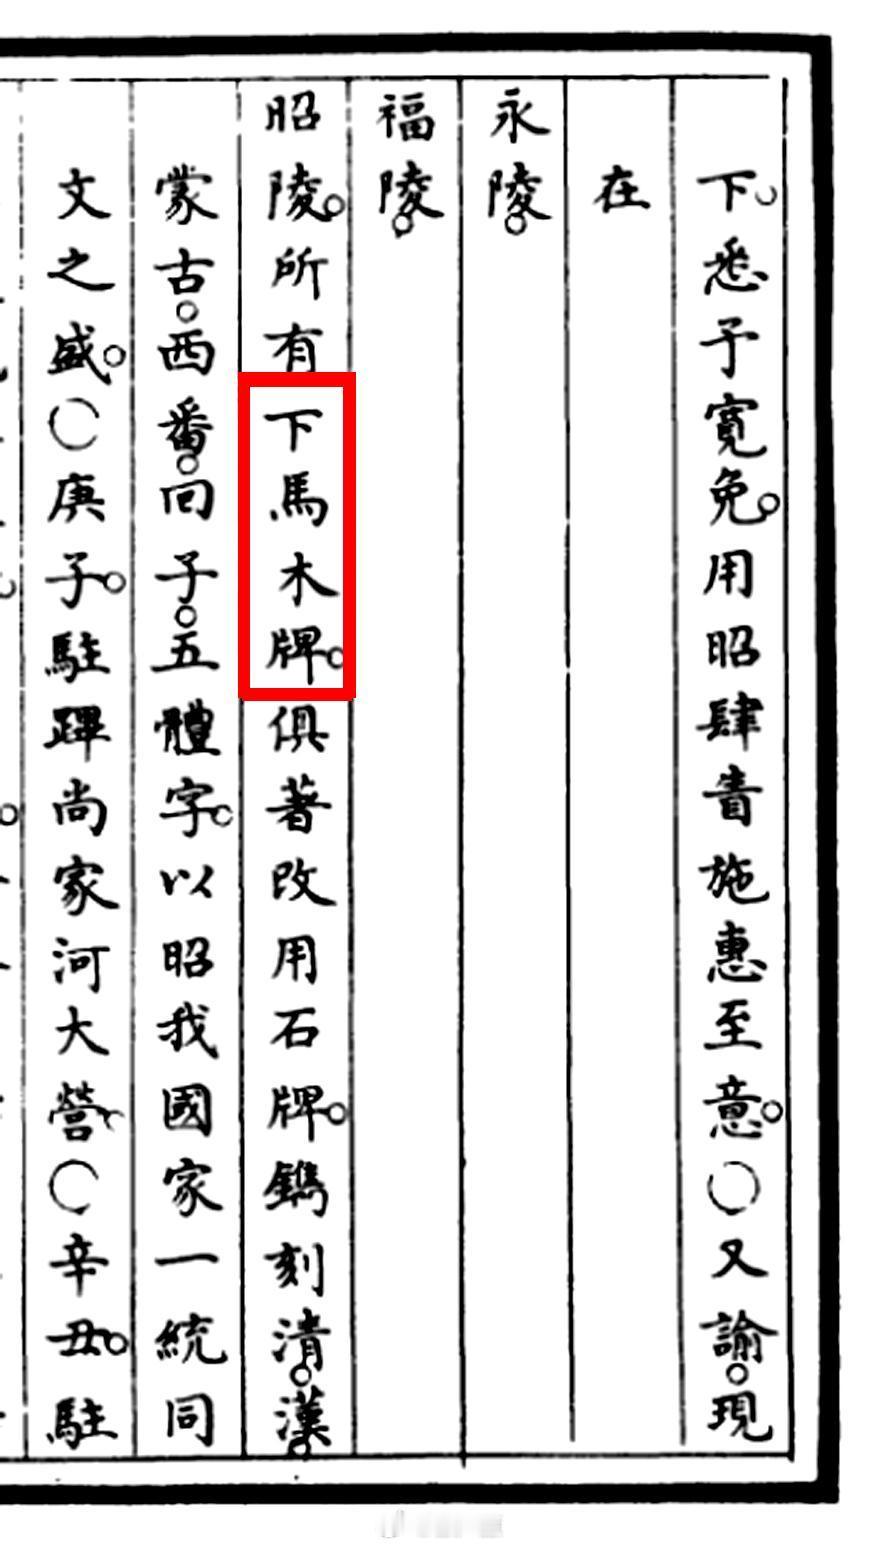 下。悉予寬免。用昭肆眚施惠至意。○又諭。現
在
永陵。
福陵。
昭陵。所有下馬木牌。俱著改用石牌。鐫刻清。漢。
蒙古。西番。回子。五體字。以昭我國家一統同
文之盛。○庚子。駐蹕尚家河大營。○辛丑。駐